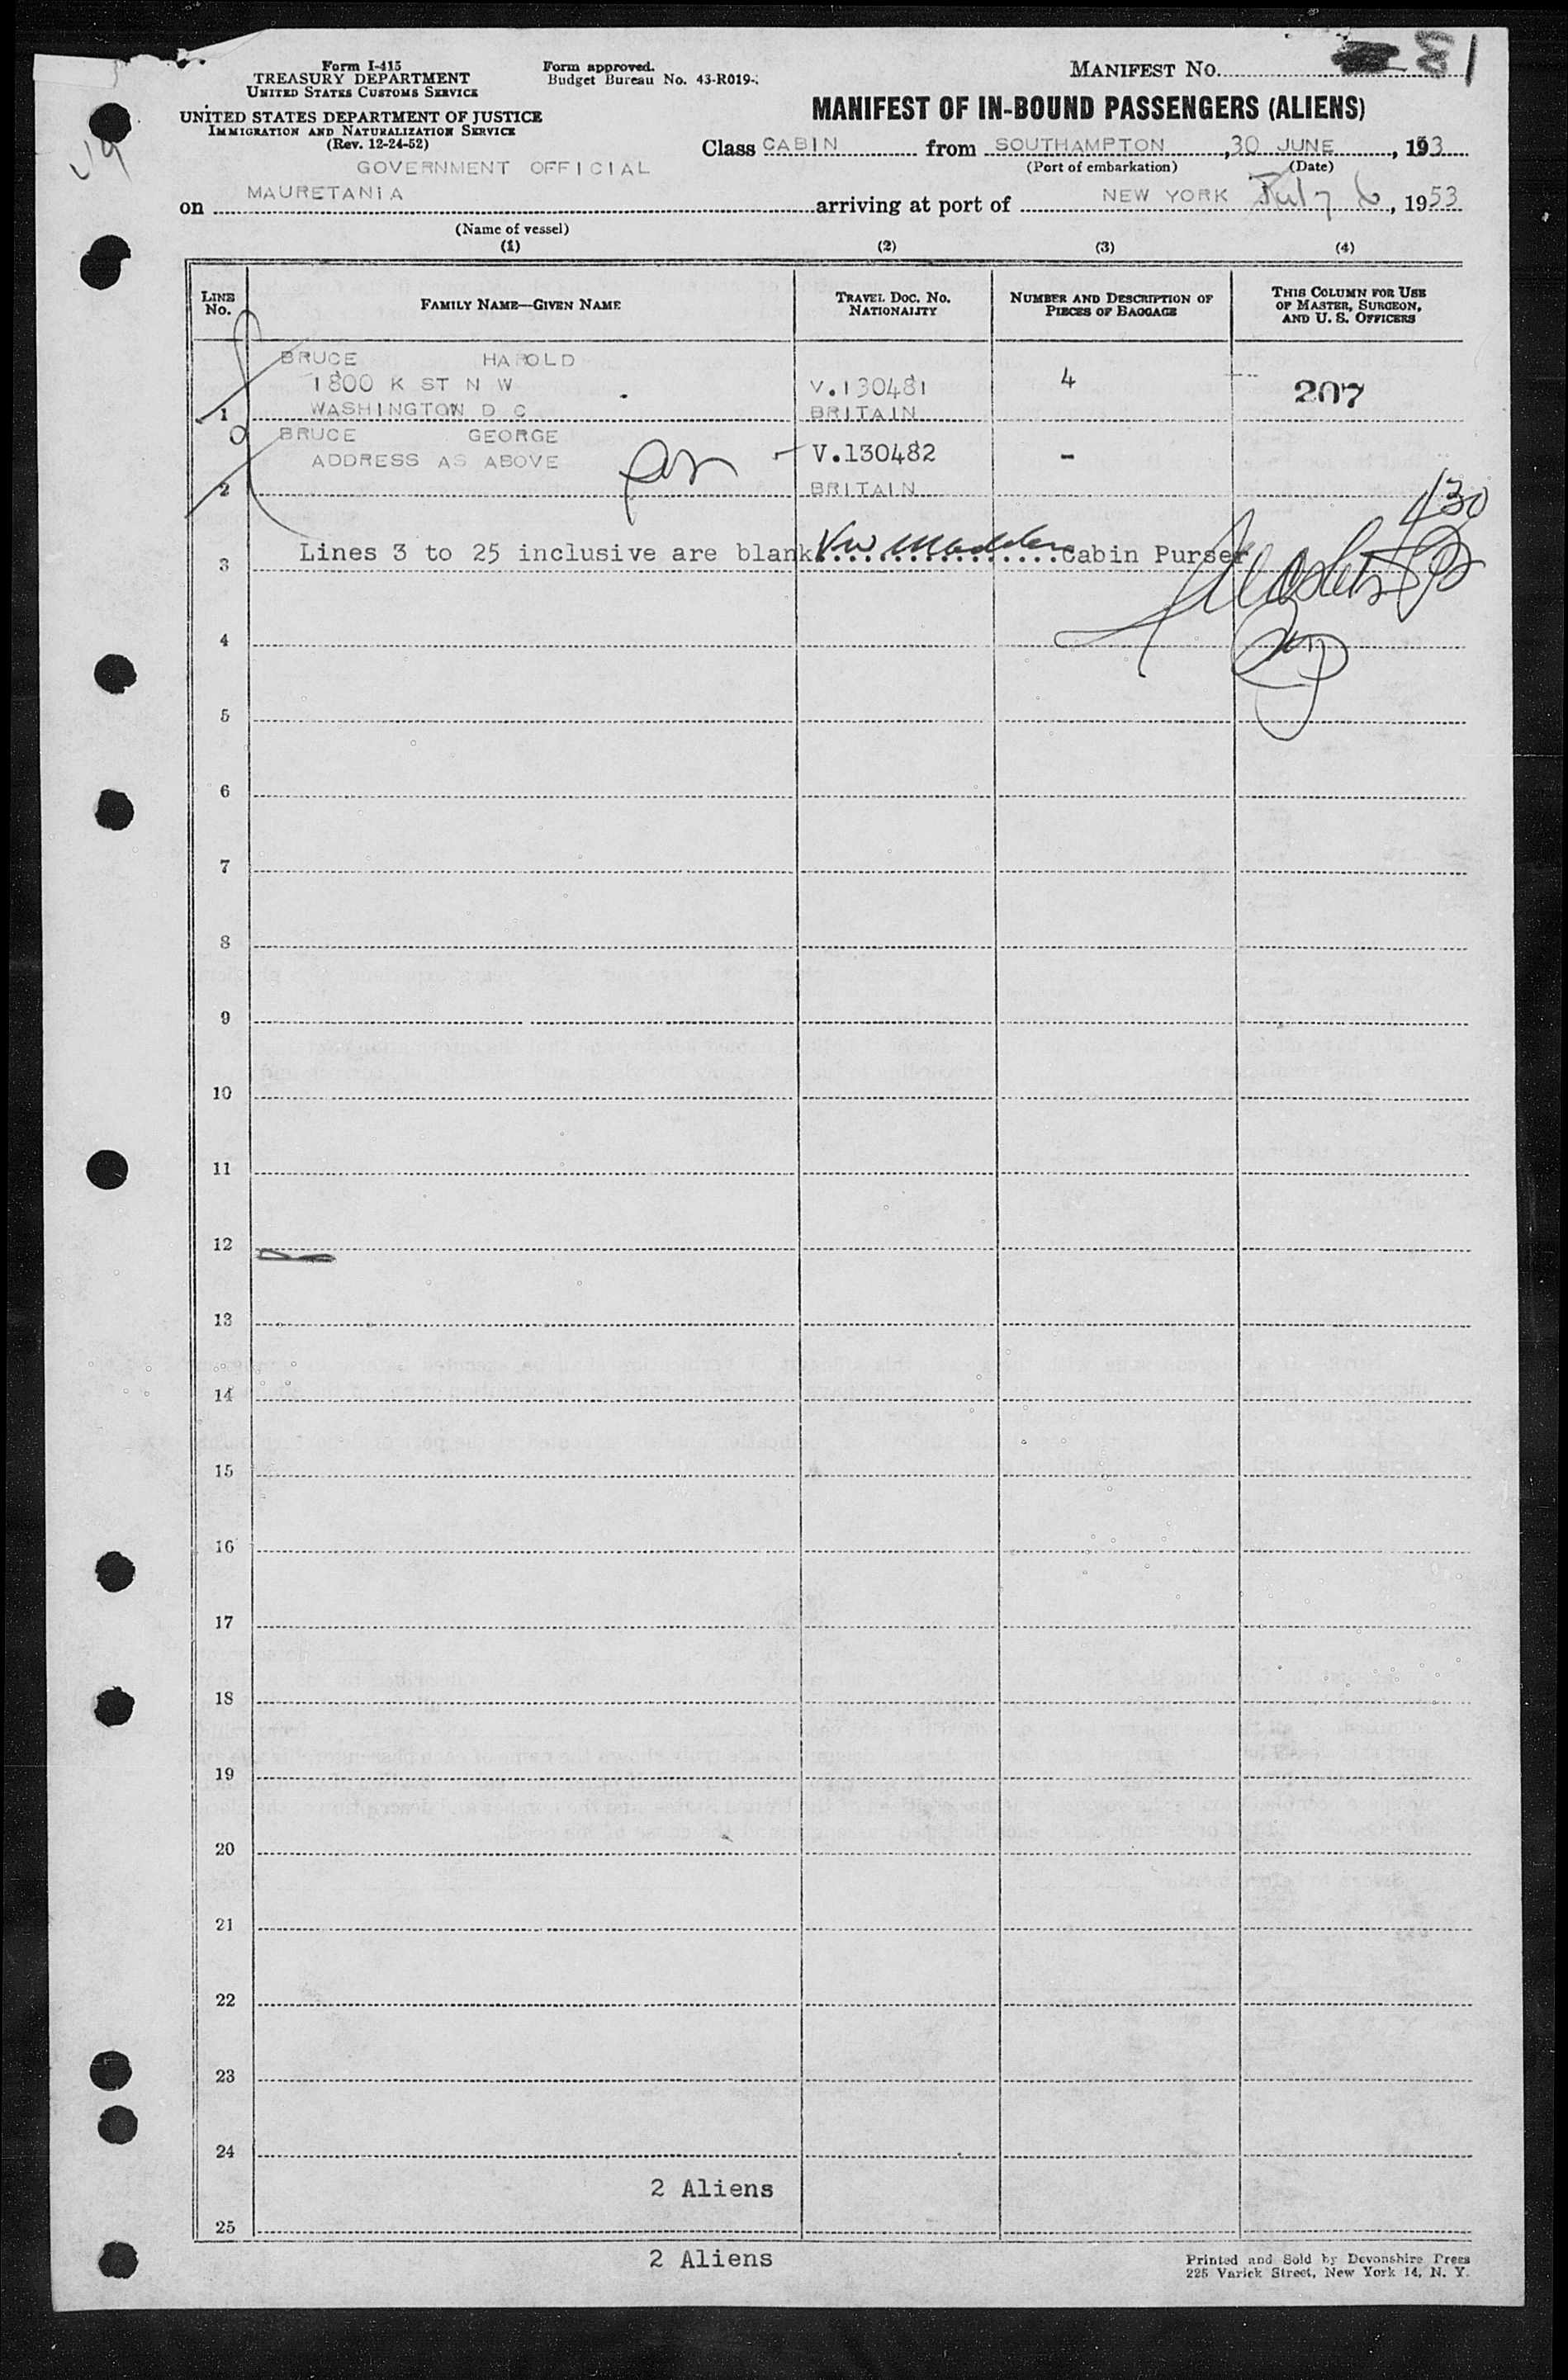 Form I-415
TREASURY DEPARTMENT
UNITED STATES CUSTOMS SERVICE
UNITED STATES DEPARTMENT OF JUSTICE
IMMIGRATION AND NATURALIZATION SERVICE
(Rev. 12-24-52)
Form approved.
Budget Bureau No. 43-R019-
MANIFEST NO. 81
MANIFEST OF IN-BOUND PASSENGERS (ALIENS)
Class CABIN from SOUTHAMPTON, 30 JUNE, 1953
(Port of embarkation) (Date)
GOVERNMENT OFFICIAL
on MAURETANIA arriving at port of NEW YORK July 6, 1953
(Name of vessel)
(1) (2) (3) (4)
LINE NO.
FAMILY NAME—GIVEN NAME
TRAVEL DOC. NO. NATIONALITY
NUMBER AND DESCRIPTION OF PIECES OF BAGGAGE
THIS COLUMN FOR USE OF MASTER, SURGEON, AND U. S. OFFICERS
BRUCE HAROLD
1800 K ST N W V.130481 4 207
1 WASHINGTON D C BRITAIN
BRUCE GEORGE
ADDRESS AS ABOVE V.130482 -
2 BRITAIN
430
3 Lines 3 to 25 inclusive are blank Cabin Purser
4
5
6
7
8
9
10
11
12
13
14
15
16
17
18
19
20
21
22
23
24
2 Aliens
25
2 Aliens
Printed and Sold by Devonshire Press
225 Varick Street, New York 14, N. Y.